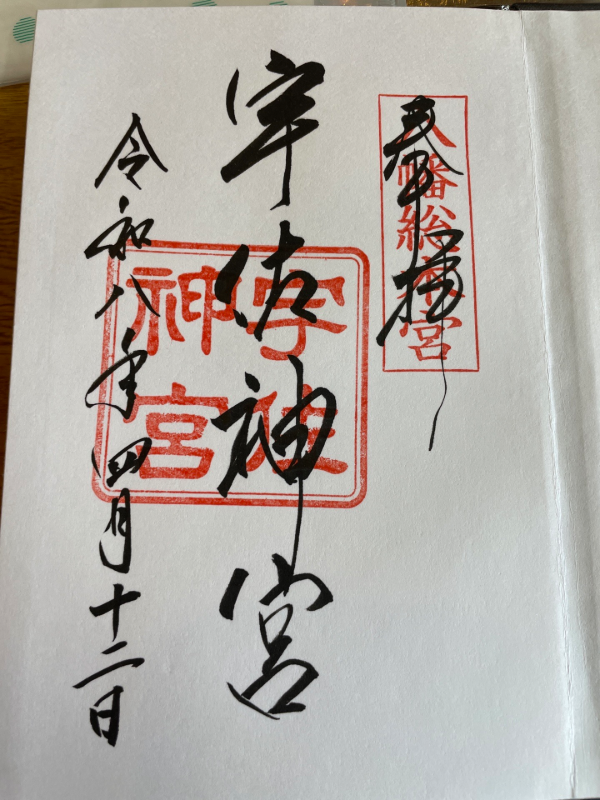 奉拝
八幡総本宮
宇佐神宮
宇佐神宮
令和八年四月十二日